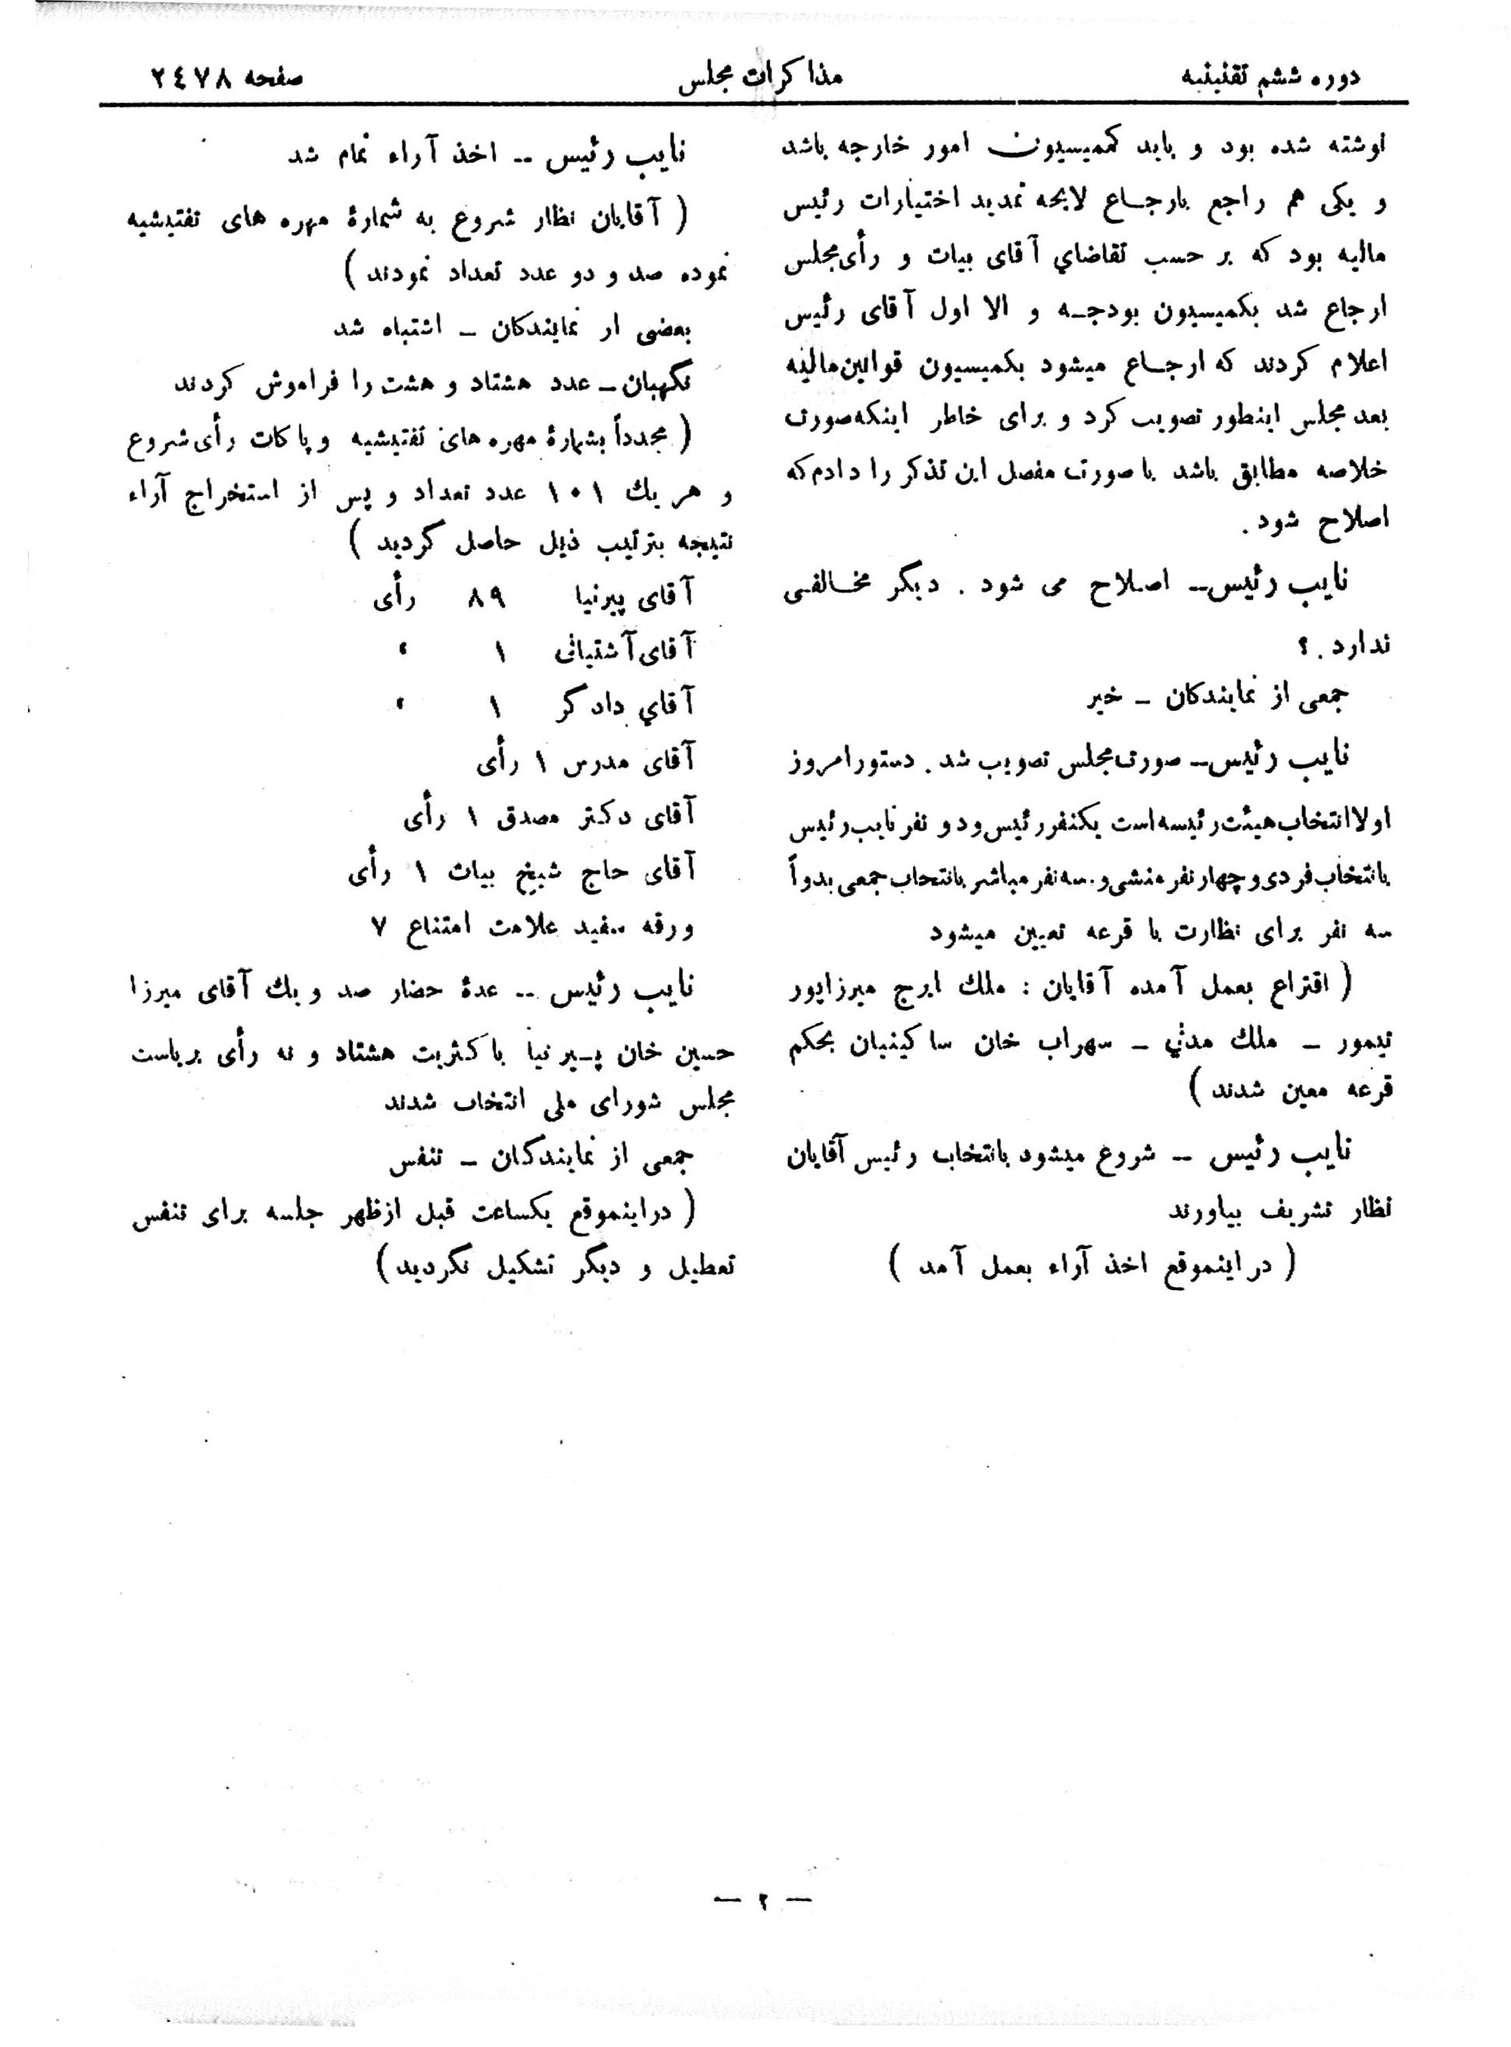 دوره ششم تقنینیه
مذاکرات مجلس
صفحه ۲٤۷۸
نوشته شده بود و باید کمیسیون امور خارجه باشد
و یکی هم راجع بارجاع لایحه تمدید اختیارات رئیس
مالیه بود که بر حسب تقاضای آقای بیات و رأی مجلس
ارجاع شد بکمیسیون بودجه و الا اول آقای رئیس
اعلام کردند که ارجاع میشود بکمیسیون قوانین مالیه
بعد مجلس اینطور تصویب کرد و برای خاطر اینکه صورت
خلاصه مطابق باشد با صورت مفصل این تذکر را دادم که
اصلاح شود .
نایب رئیس – اصلاح می شود . دیگر مخالفی
ندارد . ؟
جمعی از نمایندکان – خیر
نایب رئیس – صورت مجلس تصویب شد . دستور امروز
اولا انتخاب هیئت رئیسه است یکنفر رئیس و دو نفر نایب رئیس
بانتخاب فردی و چهار نفر منشی و سه نفر مباشر بانتخاب جمعی بدواً
سه نفر برای نظارت با قرعه تعیین میشود
( اقتراع بعمل آمده آقایان : ملك ایرج میرزاپور
تیمور – ملك مدنی – سهراب خان ساکینیان بحکم
قرعه معین شدند )
نایب رئیس – شروع میشود بانتخاب رئیس آقایان
نظار تشریف بیاورند
( در اینموقع اخذ آراء بعمل آمد )
نایب رئیس – اخذ آراء تمام شد
( آقایان نظار شروع به شمارۀ مهره های تفتیشیه
نموده صد و دو عدد تعداد نمودند )
بعضی از نمایندکان – اشتباه شد
نگهبان – عدد هشتاد و هشت را فراموش کردند
( مجدداً بشمارۀ مهره های تفتیشیه و پاکات رأی شروع
و هر یك ۱۰۱ عدد تعداد و پس از استخراج آراء
نتیجه بترتیب ذیل حاصل گردید )
آقای پیرنیا ۸۹ رأی
آقای آشتیانی ۱ ،
آقای دادگر ۱ ،
آقای مدرس ۱ رأی
آقای دکتر مصدق ۱ رأی
آقای حاج شیخ بیات ۱ رأی
ورقه سفید علامت امتناع ۷
نایب رئیس – عدۀ حضار صد و یك آقای میرزا
حسین خان پیرنیا با کثریت هشتاد و نه رأی بریاست
مجلس شورای ملی انتخاب شدند
جمعی از نمایندگان – تنفس
( در اینموقع یکساعت قبل از ظهر جلسه برای تنفس
تعطیل و دیگر تشکیل نگردید )
— ۲ —